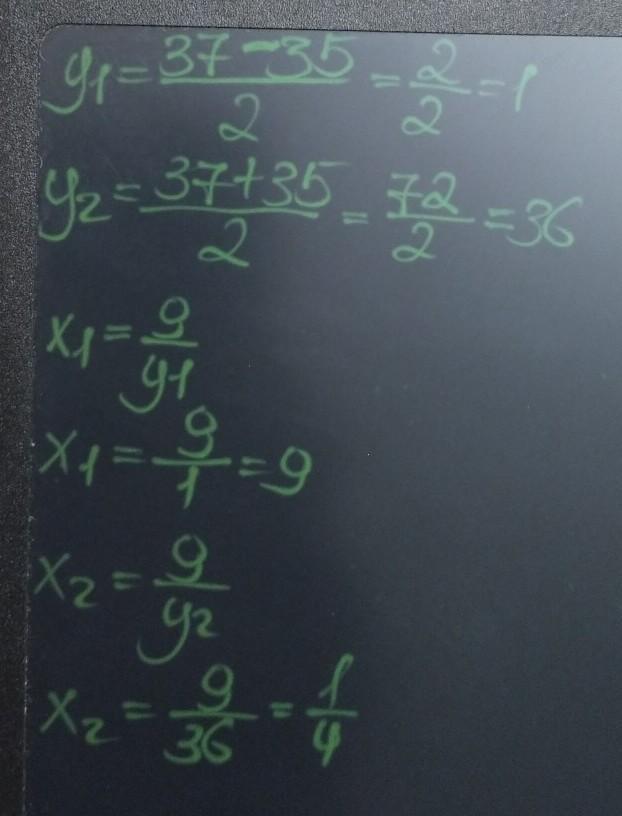 y1 = 37-35/2 = 2/2 = 1
y2 = 37+35/2 = 72/2 = 36
x1 = 9/y1
x1 = 9/1 = 9
x2 = 9/y2
x2 = 9/36 = 1/4